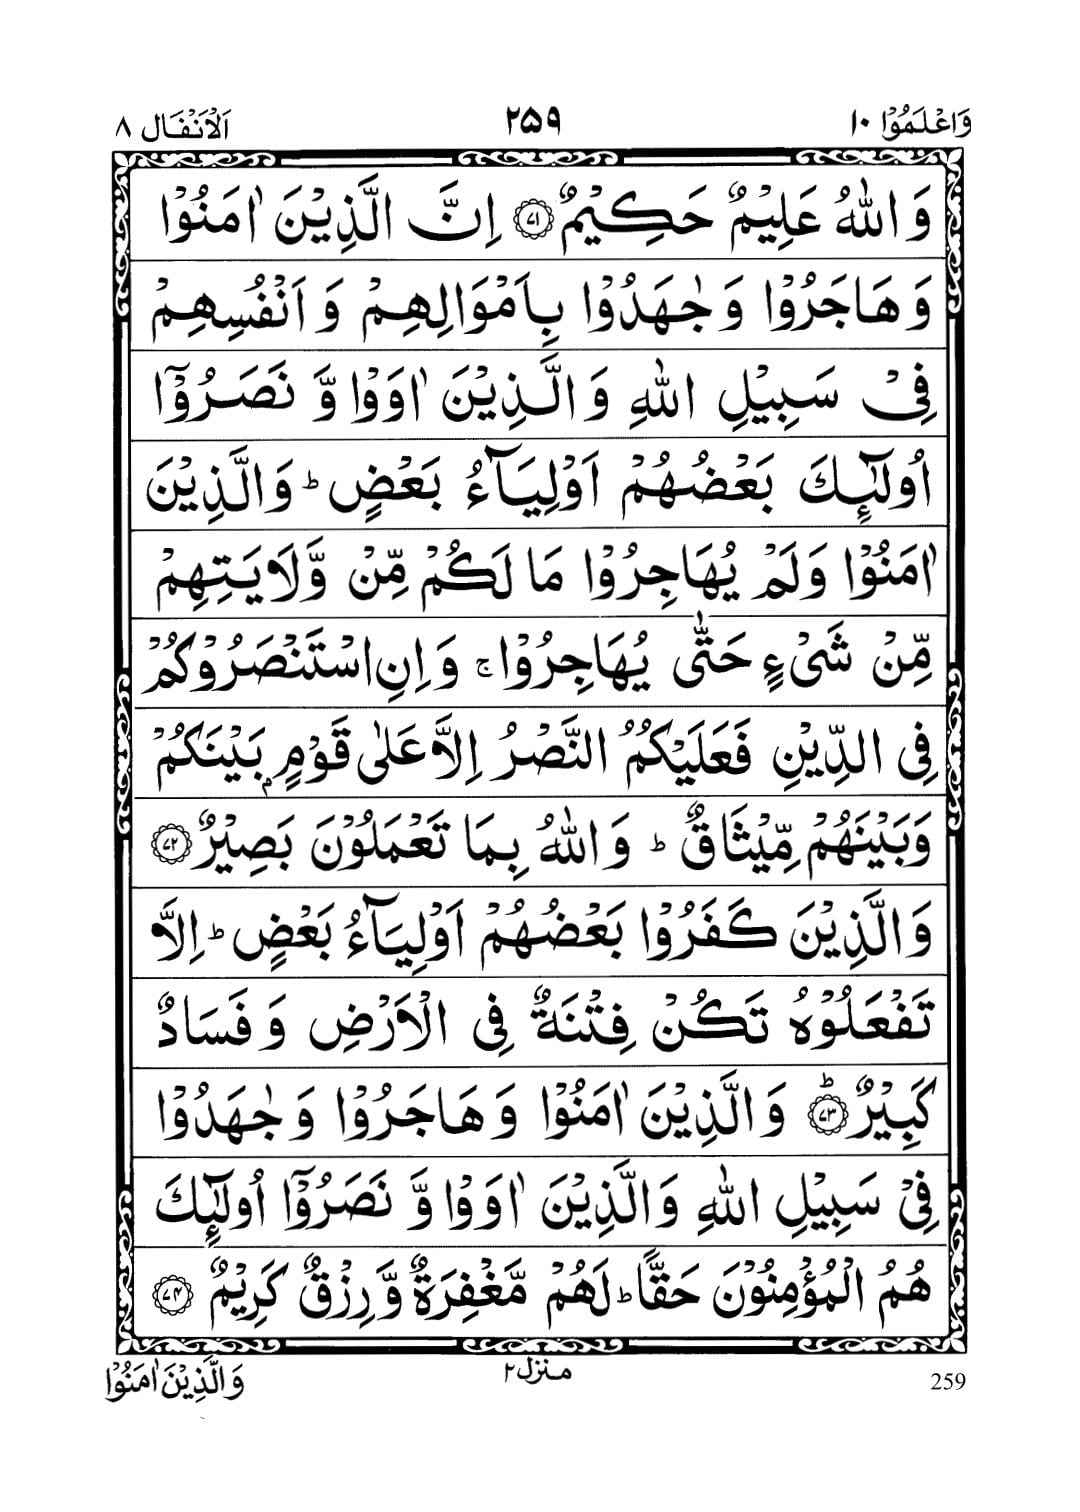 وَاعْلَمُوْۤا ١٠
٢٥٩
اَلْاَنْفَال ٨
وَ اللّٰهُ عَلِیْمٌ حَكِیْمٌ ﴿۷۱﴾ اِنَّ الَّذِیْنَ اٰمَنُوْا
وَ هَاجَرُوْا وَ جٰهَدُوْا بِاَمْوَالِهِمْ وَ اَنْفُسِهِمْ
فِیْ سَبِیْلِ اللّٰهِ وَ الَّذِیْنَ اٰوَوْا وَّ نَصَرُوْۤا
اُولٰٓىِٕكَ بَعْضُهُمْ اَوْلِیَآءُ بَعْضٍ ؕ وَ الَّذِیْنَ
اٰمَنُوْا وَ لَمْ یُهَاجِرُوْا مَا لَكُمْ مِّنْ وَّلَایَتِهِمْ
مِّنْ شَیْءٍ حَتّٰی یُهَاجِرُوْا ۚ وَ اِنِ اسْتَنْصَرُوْكُمْ
فِی الدِّیْنِ فَعَلَیْكُمُ النَّصْرُ اِلَّا عَلٰی قَوْمٍۭ بَیْنَكُمْ
وَ بَیْنَهُمْ مِّیْثَاقٌ ؕ وَ اللّٰهُ بِمَا تَعْمَلُوْنَ بَصِیْرٌ ﴿۷۲﴾
وَ الَّذِیْنَ كَفَرُوْا بَعْضُهُمْ اَوْلِیَآءُ بَعْضٍ ؕ اِلَّا
تَفْعَلُوْهُ تَكُنْ فِتْنَةٌ فِی الْاَرْضِ وَ فَسَادٌ
كَبِیْرٌ ﴿ؕ۷۳﴾ وَ الَّذِیْنَ اٰمَنُوْا وَ هَاجَرُوْا وَ جٰهَدُوْا
فِیْ سَبِیْلِ اللّٰهِ وَ الَّذِیْنَ اٰوَوْا وَّ نَصَرُوْۤا اُولٰٓىِٕكَ
هُمُ الْمُؤْمِنُوْنَ حَقًّا ؕ لَهُمْ مَّغْفِرَةٌ وَّ رِزْقٌ كَرِیْمٌ ﴿۷۴﴾
259
منزل ٢
وَالَّذِیْنَ اٰمَنُوْا